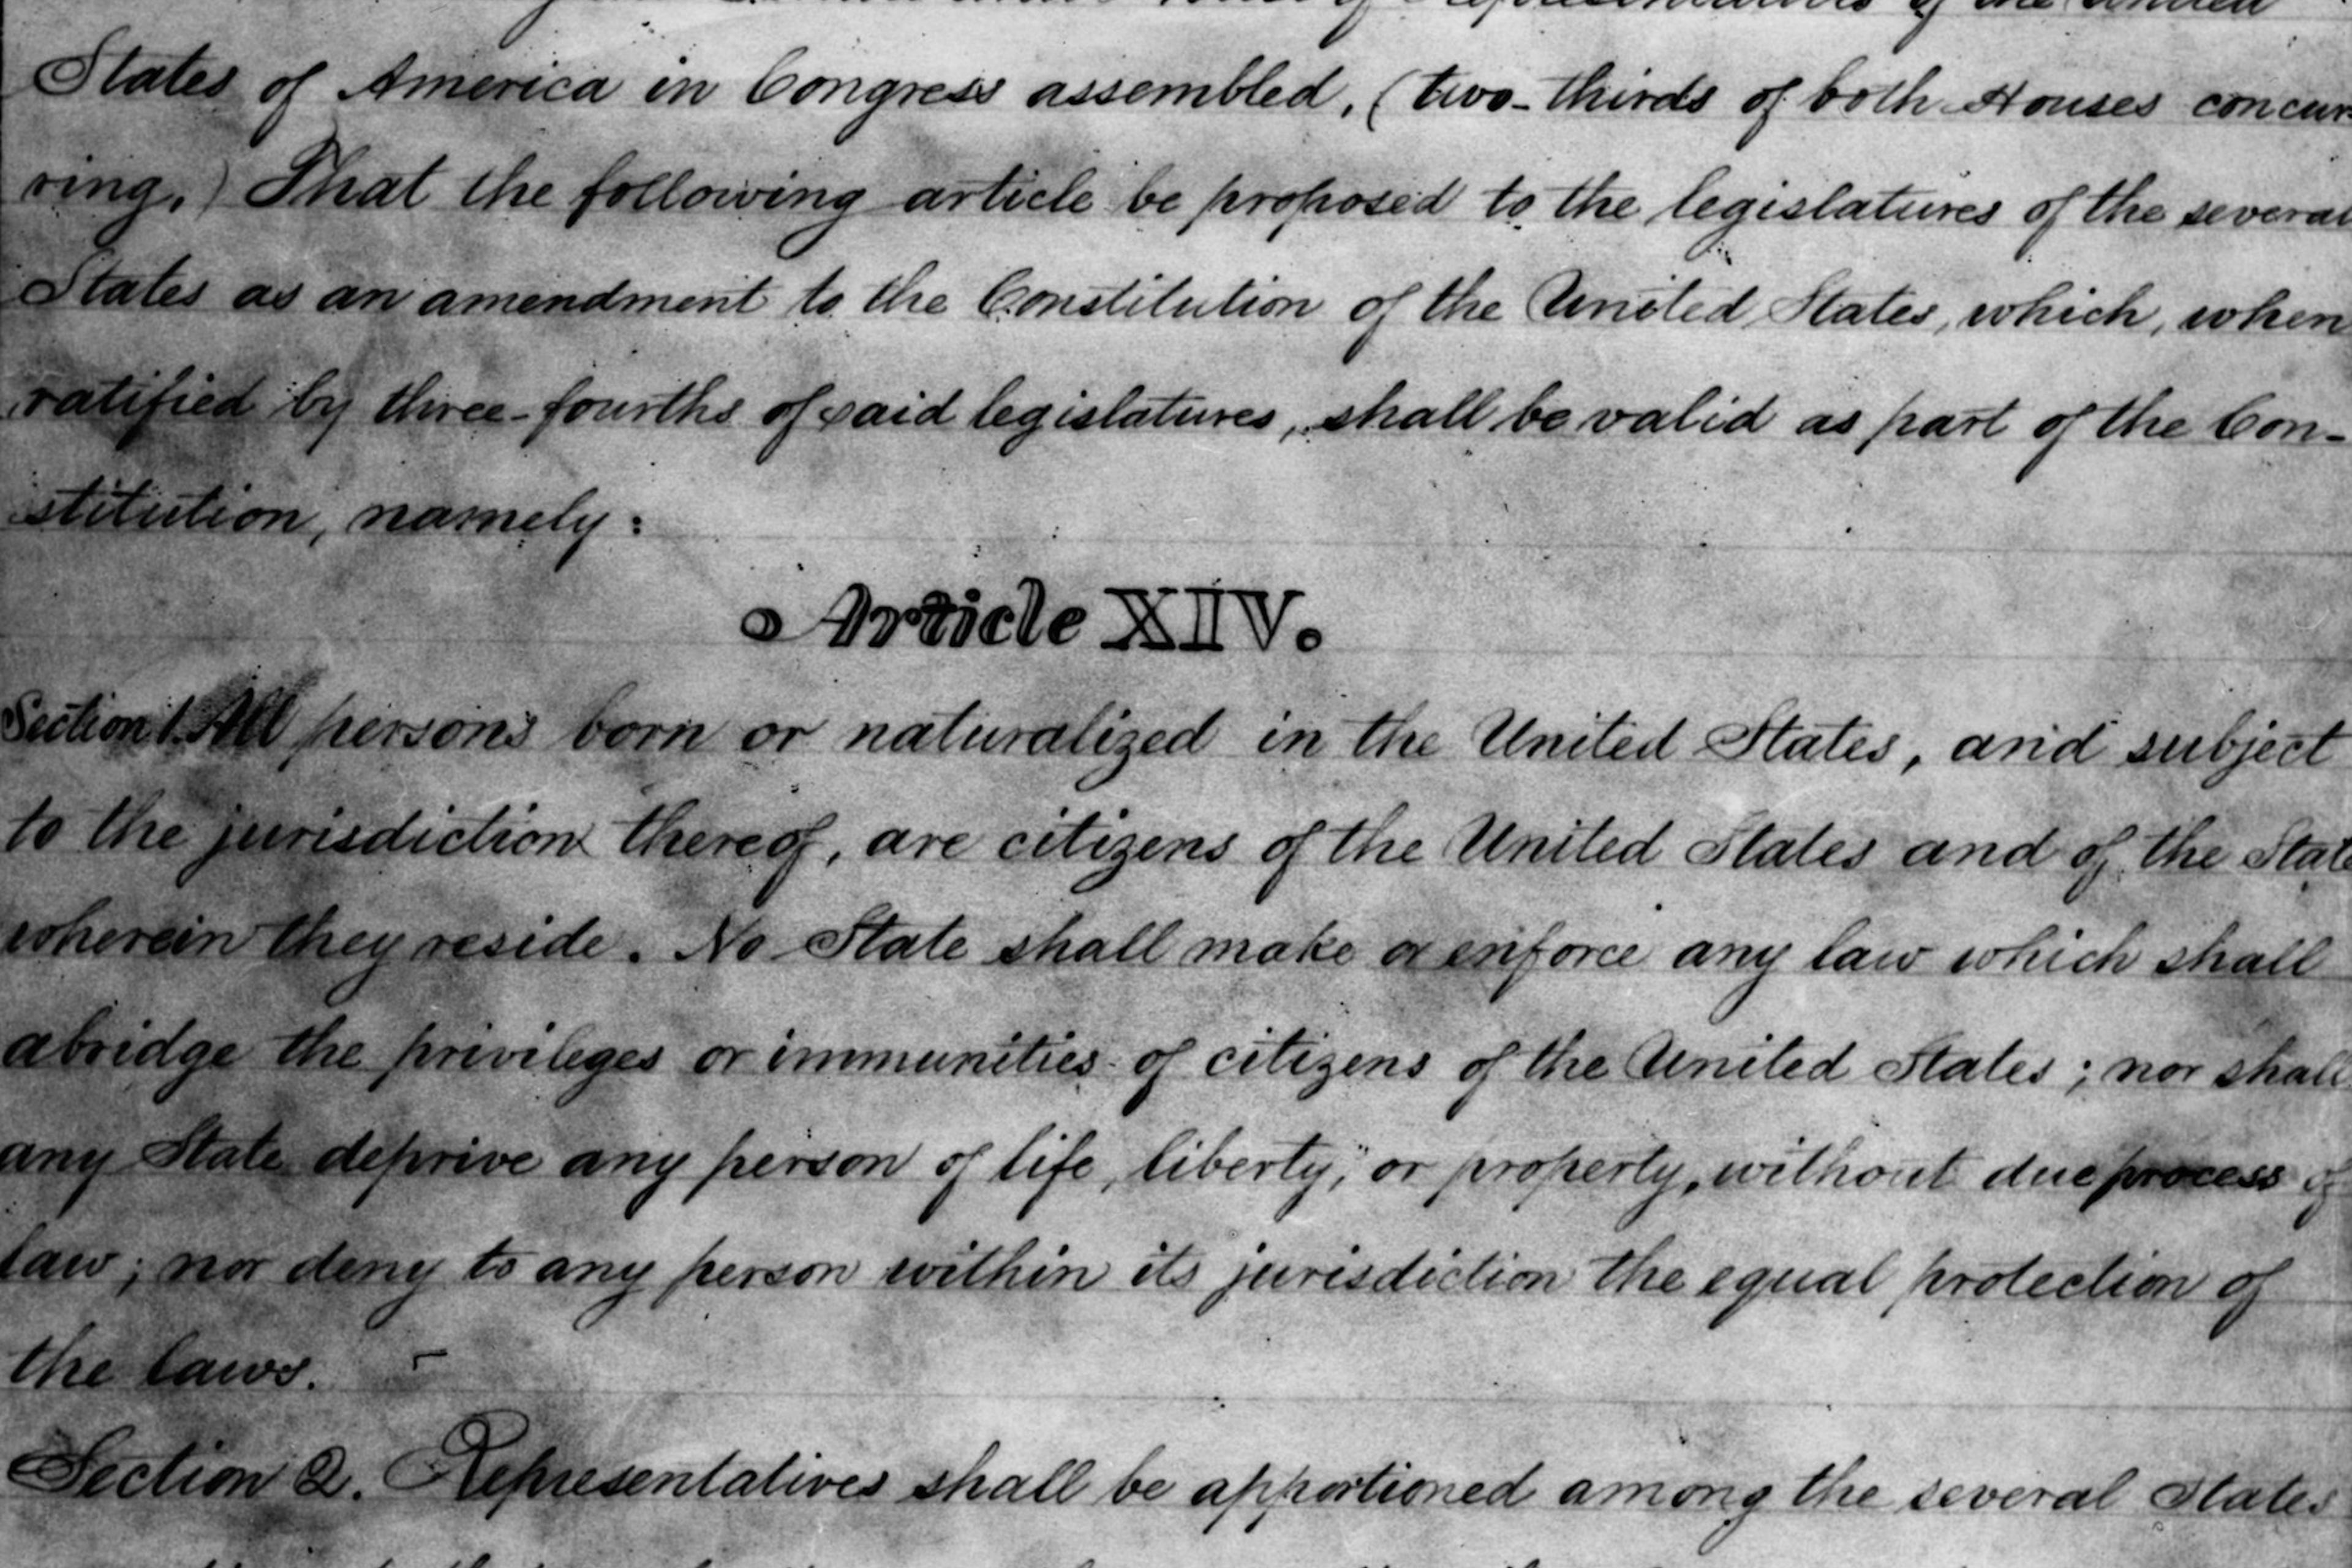 Representatives of the United
States of America in Congress assembled, (two-thirds of both Houses concur-
ring,) That the following article be proposed to the legislatures of the several
States as an amendment to the Constitution of the United States, which, when
ratified by three-fourths of said legislatures, shall be valid as part of the Con-
stitution, namely:
Article XIV.
Section 1. All persons born or naturalized in the United States, and subject
to the jurisdiction thereof, are citizens of the United States and of the State
wherein they reside. No State shall make or enforce any law which shall
abridge the privileges or immunities of citizens of the United States; nor shall
any State deprive any person of life, liberty, or property, without due process of
law; nor deny to any person within its jurisdiction the equal protection of
the laws.
Section 2. Representatives shall be apportioned among the several States